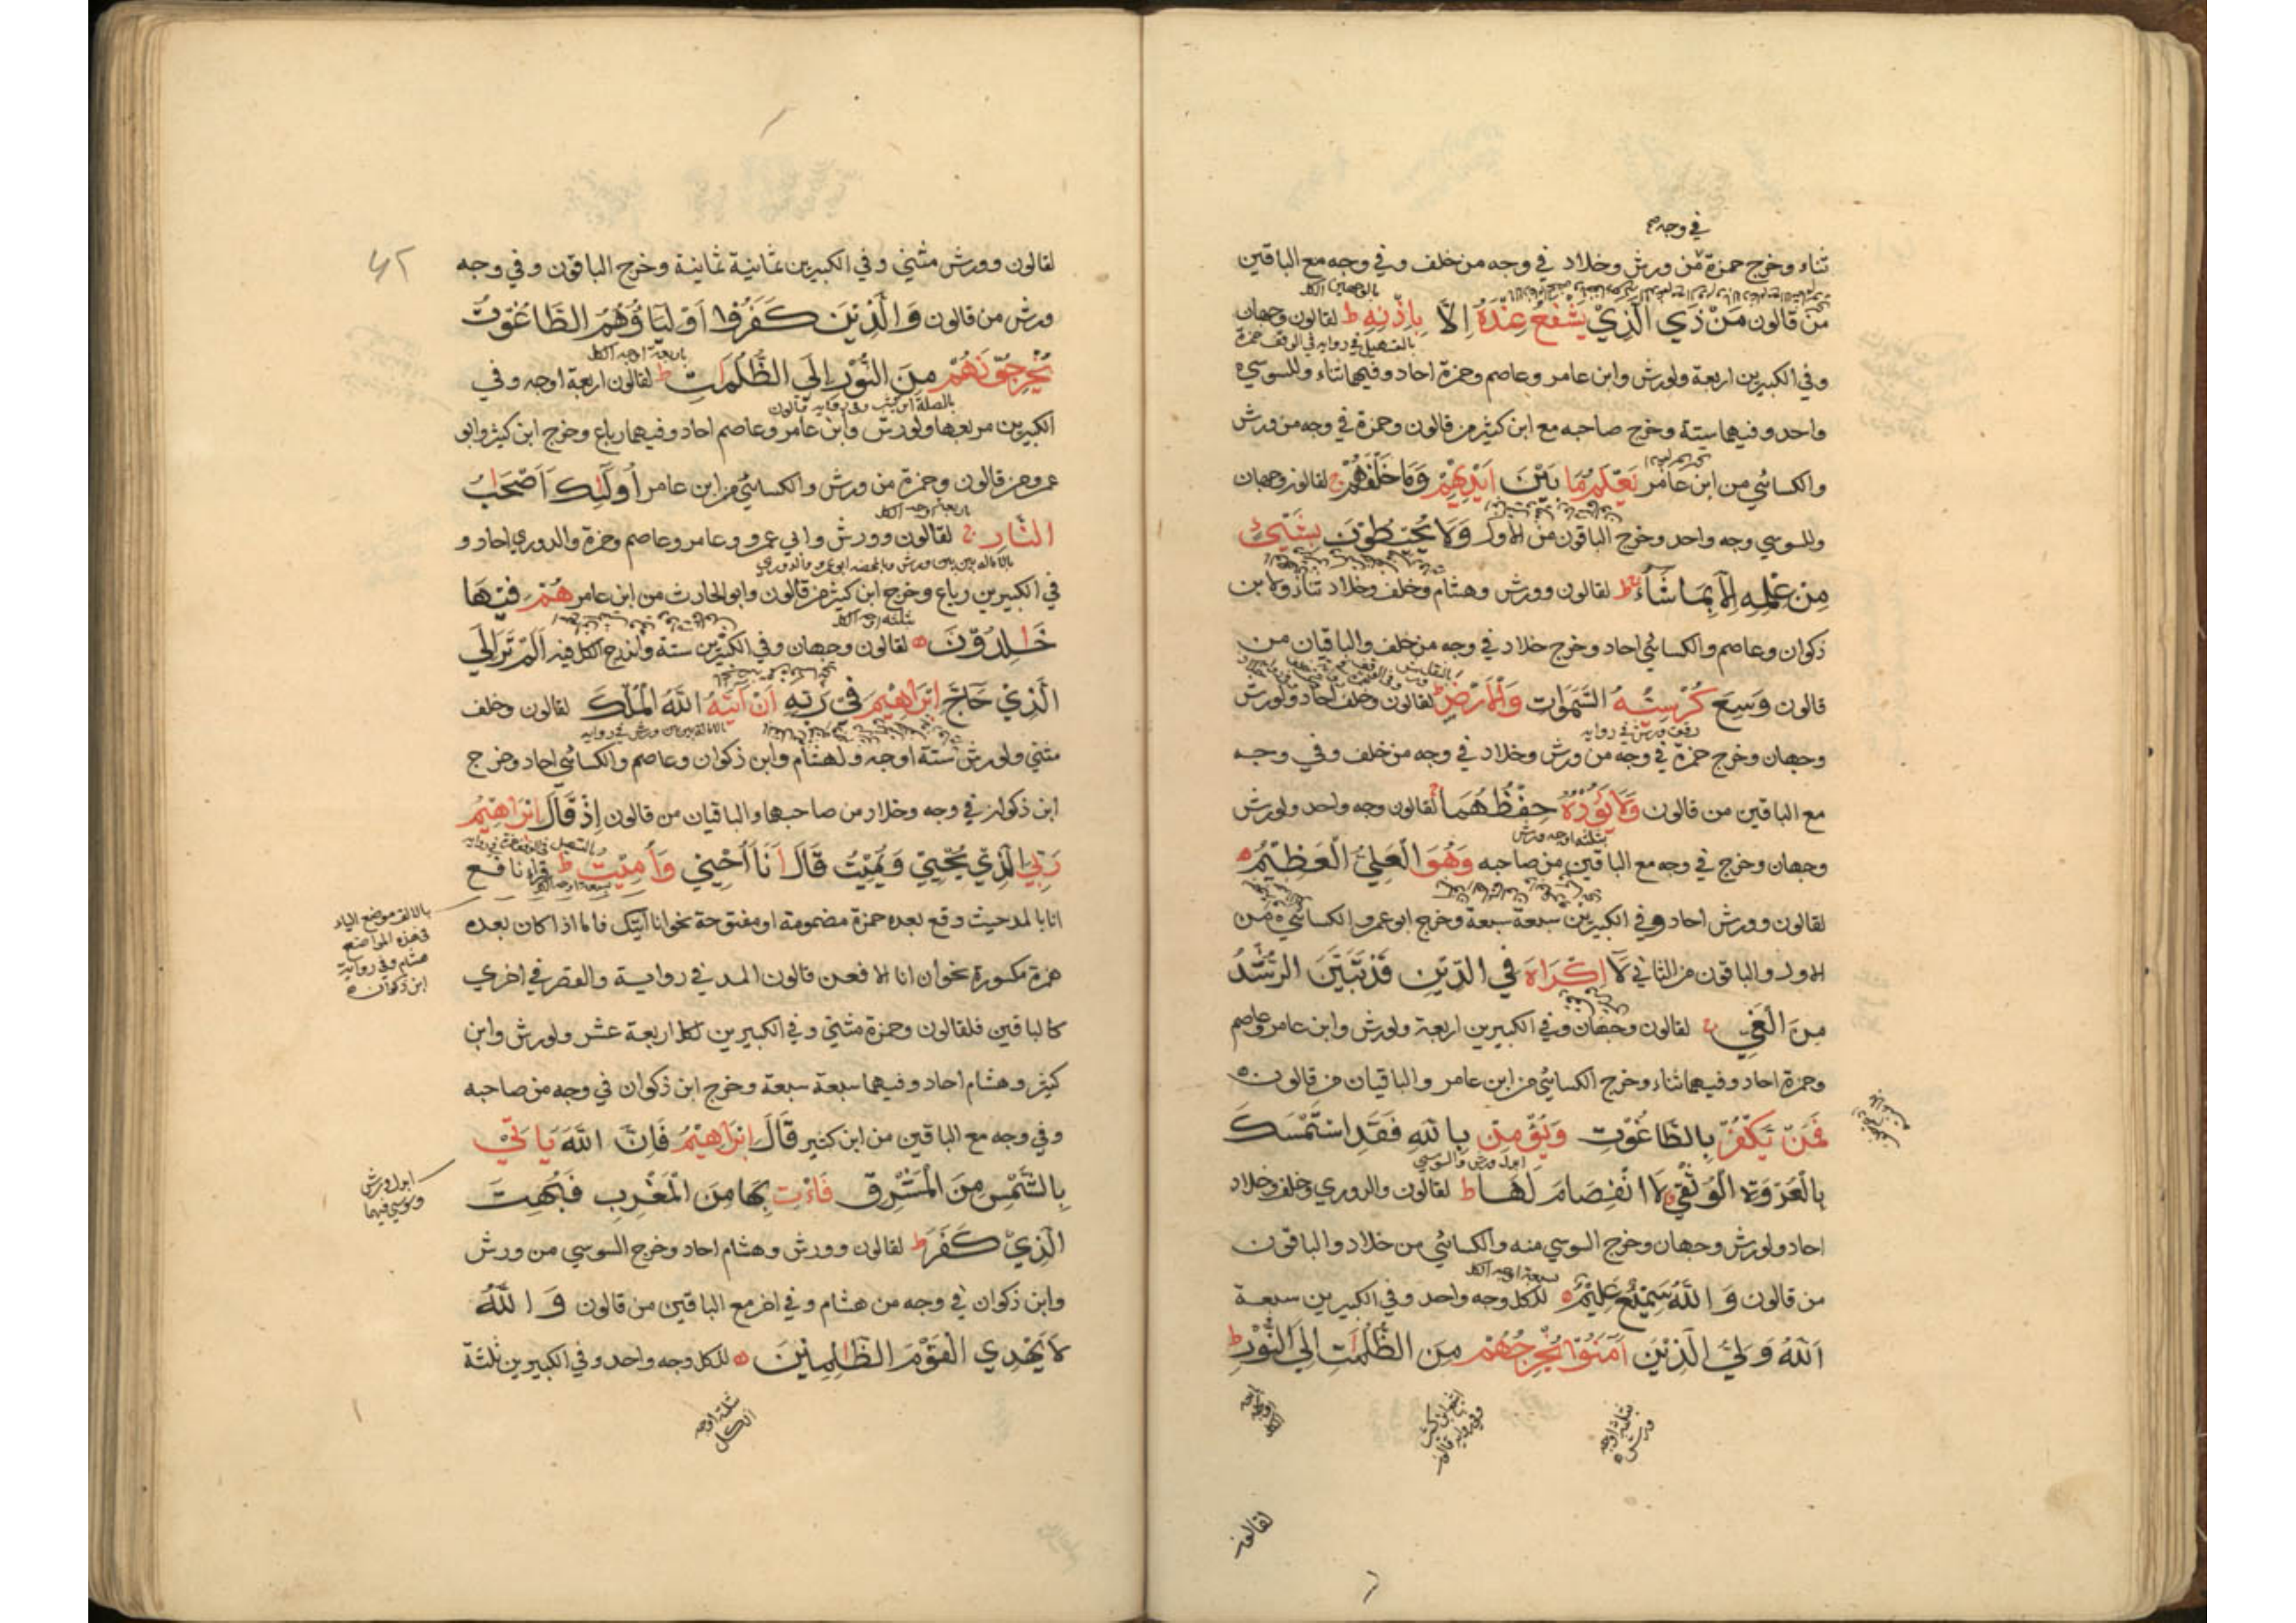 في وجه
ثناء وخرج حمزة من ورش وخلاد في وجه من خلف وفي وجه مع الباقين
من قالون مَنْ ذَي الَّذِيْ يَشْفَعُ عِنْدَهُ اِلَّا بِاِذْنِهٖ ط لقالون وجهان
وفي الكبيرين اربعة ولورش وابن عامر وعاصم وحمزة احاد وفيهما ثناء وللسوسي
واحد وفيهما ستة وخرج صاحبه مع ابن كثير من قالون وحمزة في وجه من ورش
والكسائي من ابن عامر يَعْلَمُ مَا بَيْنَ اَيْدِيْهِمْ وَمَا خَلْفَهُمْ ج لقالون وجهان
وللسوسي وجه واحد وخرج الباقون من الاول وَلَا يُحِيْطُوْنَ بِشَيْءٍ
مِنْ عِلْمِهٖ اِلَّا بِمَا شَاءَ ط لقالون وورش وهشام وخلف وخلاد ثناء ولابن
ذكوان وعاصم والكسائي احاد وخرج خلاد في وجه من خلف والباقيان من
قالون وَسِعَ كُرْسِيُّهُ السَّمٰوَاتِ وَالْاَرْضَ لقالون وخلف احاد ولورش
وجهان وخرج حمزة في وجه من ورش وخلاد في وجه من خلف وفي وجه
مع الباقين من قالون وَلَا يَؤُدُهٗ حِفْظُهُمَا لقالون وجه واحد ولورش
بثلثة اوجه ورش
وجهان وخرج في وجه مع الباقين من صاحبه وَهُوَ الْعَلِيُّ الْعَظِيْمُ
لقالون وورش احاد وفي الكبيرين سبعة سبعة وخرج ابو عمرو الكسائي من
الاول والباقون من الثاني لَا اِكْرَاهَ فِي الدِّيْنِ قَدْ تَبَيَّنَ الرُّشْدُ
مِنَ الْغَيِّ ج لقالون وجهان وفي الكبيرين اربعة ولورش وابن عامر وعاصم
وحمزة احاد وفيهما ثناء وخرج الكسائي من ابن عامر والباقيان من قالون
فَمَنْ يَكْفُرْ بِالطَّاغُوْتِ وَيُؤْمِنْ بِاللّٰهِ فَقَدِ اسْتَمْسَكَ
ابدل ورش والسوسي
بِالْعُرْوَةِ الْوُثْقٰي لَا انْفِصَامَ لَهَا ط لقالون والدوري وخلف وخلاد
احاد ولورش وجهان وخرج السوسي منه والكسائي من خلاد والباقون
سبعة اوجه الكل
من قالون وَاللّٰهُ سَمِيْعٌ عَلِيْمٌ للكل وجه واحد وفي الكبيرين سبعة
اَللّٰهُ وَلِيُّ الَّذِيْنَ اٰمَنُوْا يُخْرِجُهُمْ مِنَ الظُّلُمٰتِ اِلَي النُّوْرِ ط
بثلثة اوجه ورش
لقالون
لقالون وورش مثنى وفي الكبيرين ثمانية ثمانية وخرج الباقون وفي وجه
ورش من قالون وَالَّذِيْنَ كَفَرُوْا اَوْلِيَاؤُهُمُ الطَّاغُوْتُ
باربعة اوجه الكل
يُخْرِجُوْنَهُمْ مِنَ النُّوْرِ اِلَي الظُّلُمَاتِ ط لقالون اربعة اوجه وفي
بالصلة ابن كثير وفي رواية قالون
الكبيرين مربعها ولورش وابن عامر وعاصم احاد وفيهما رباع وخرج ابن كثير وابو
عمرو من قالون وحمزة من ورش والكسائي من ابن عامر اُولٰئِكَ اَصْحَابُ
باربعة اوجه الكل
النَّارِ ج لقالون وورش وابي عمرو وعامر وعاصم وحمزة والدوري احاد و
في الكبيرين رباع وخرج ابن كثير من قالون وابو الحارث من ابن عامر هُمْ فِيْهَا
ثلثة اوجه الكل
خٰلِدُوْنَ لقالون وجهان وفي الكبيرين ستة واندرج الكل فيه اَلَمْ تَرَ اِلَي
الَّذِيْ حَاجَّ اِبْرٰهِيْمَ فِيْ رَبِّهٖ اَنْ اٰتٰيهُ اللّٰهُ الْمُلْكَ لقالون وخلف
مثنى ولورش ستة اوجه ولهشام وابن ذكوان وعاصم والكسائي احاد وخرج
ابن ذكوان في وجه وخلاد من صاحبهما والباقيان من قالون اِذْ قَالَ اِبْرٰهِيْمُ
رَبِّيَ الَّذِيْ يُحْيِيْ وَيُمِيْتُ قَالَ اَنَا اُحْيِيْ وَاُمِيْتُ ط قرا نافع
انا بالمد حيث وقع بعده همزة مضمومة او مفتوحة نحو انا آتيك فاما اذا كان بعده
همزة مكسورة نحو ان انا الا فعن قالون المد في رواية والقصر في اخري
كالباقين فلقالون وحمزة مثنى وفي الكبيرين لكل اربعة عشر ولورش وابن
كثير وهشام احاد وفيهما سبعة سبعة وخرج ابن ذكوان في وجه من صاحبه
وفي وجه مع الباقين من ابن كثير قَالَ اِبْرٰهِيْمُ فَاِنَّ اللّٰهَ يَاتِيْ
بِالشَّمْسِ مِنَ الْمَشْرِقِ فَاْتِ بِهَا مِنَ الْمَغْرِبِ فَبُهِتَ
الَّذِيْ كَفَرَ ط لقالون وورش وهشام احاد وخرج السوسي من ورش
وابن ذكوان في وجه من هشام وفي اخر مع الباقين من قالون وَاللّٰهُ
لَا يَهْدِي الْقَوْمَ الظّٰلِمِيْنَ للكل وجه واحد وفي الكبيرين ثلثة
ثلثة اوجه
الكل
بالالف موضع الياء
في هذه المواضع
هشام وفي رواية
ابن ذكوان
ابدل ورش
وسوسي فيهما